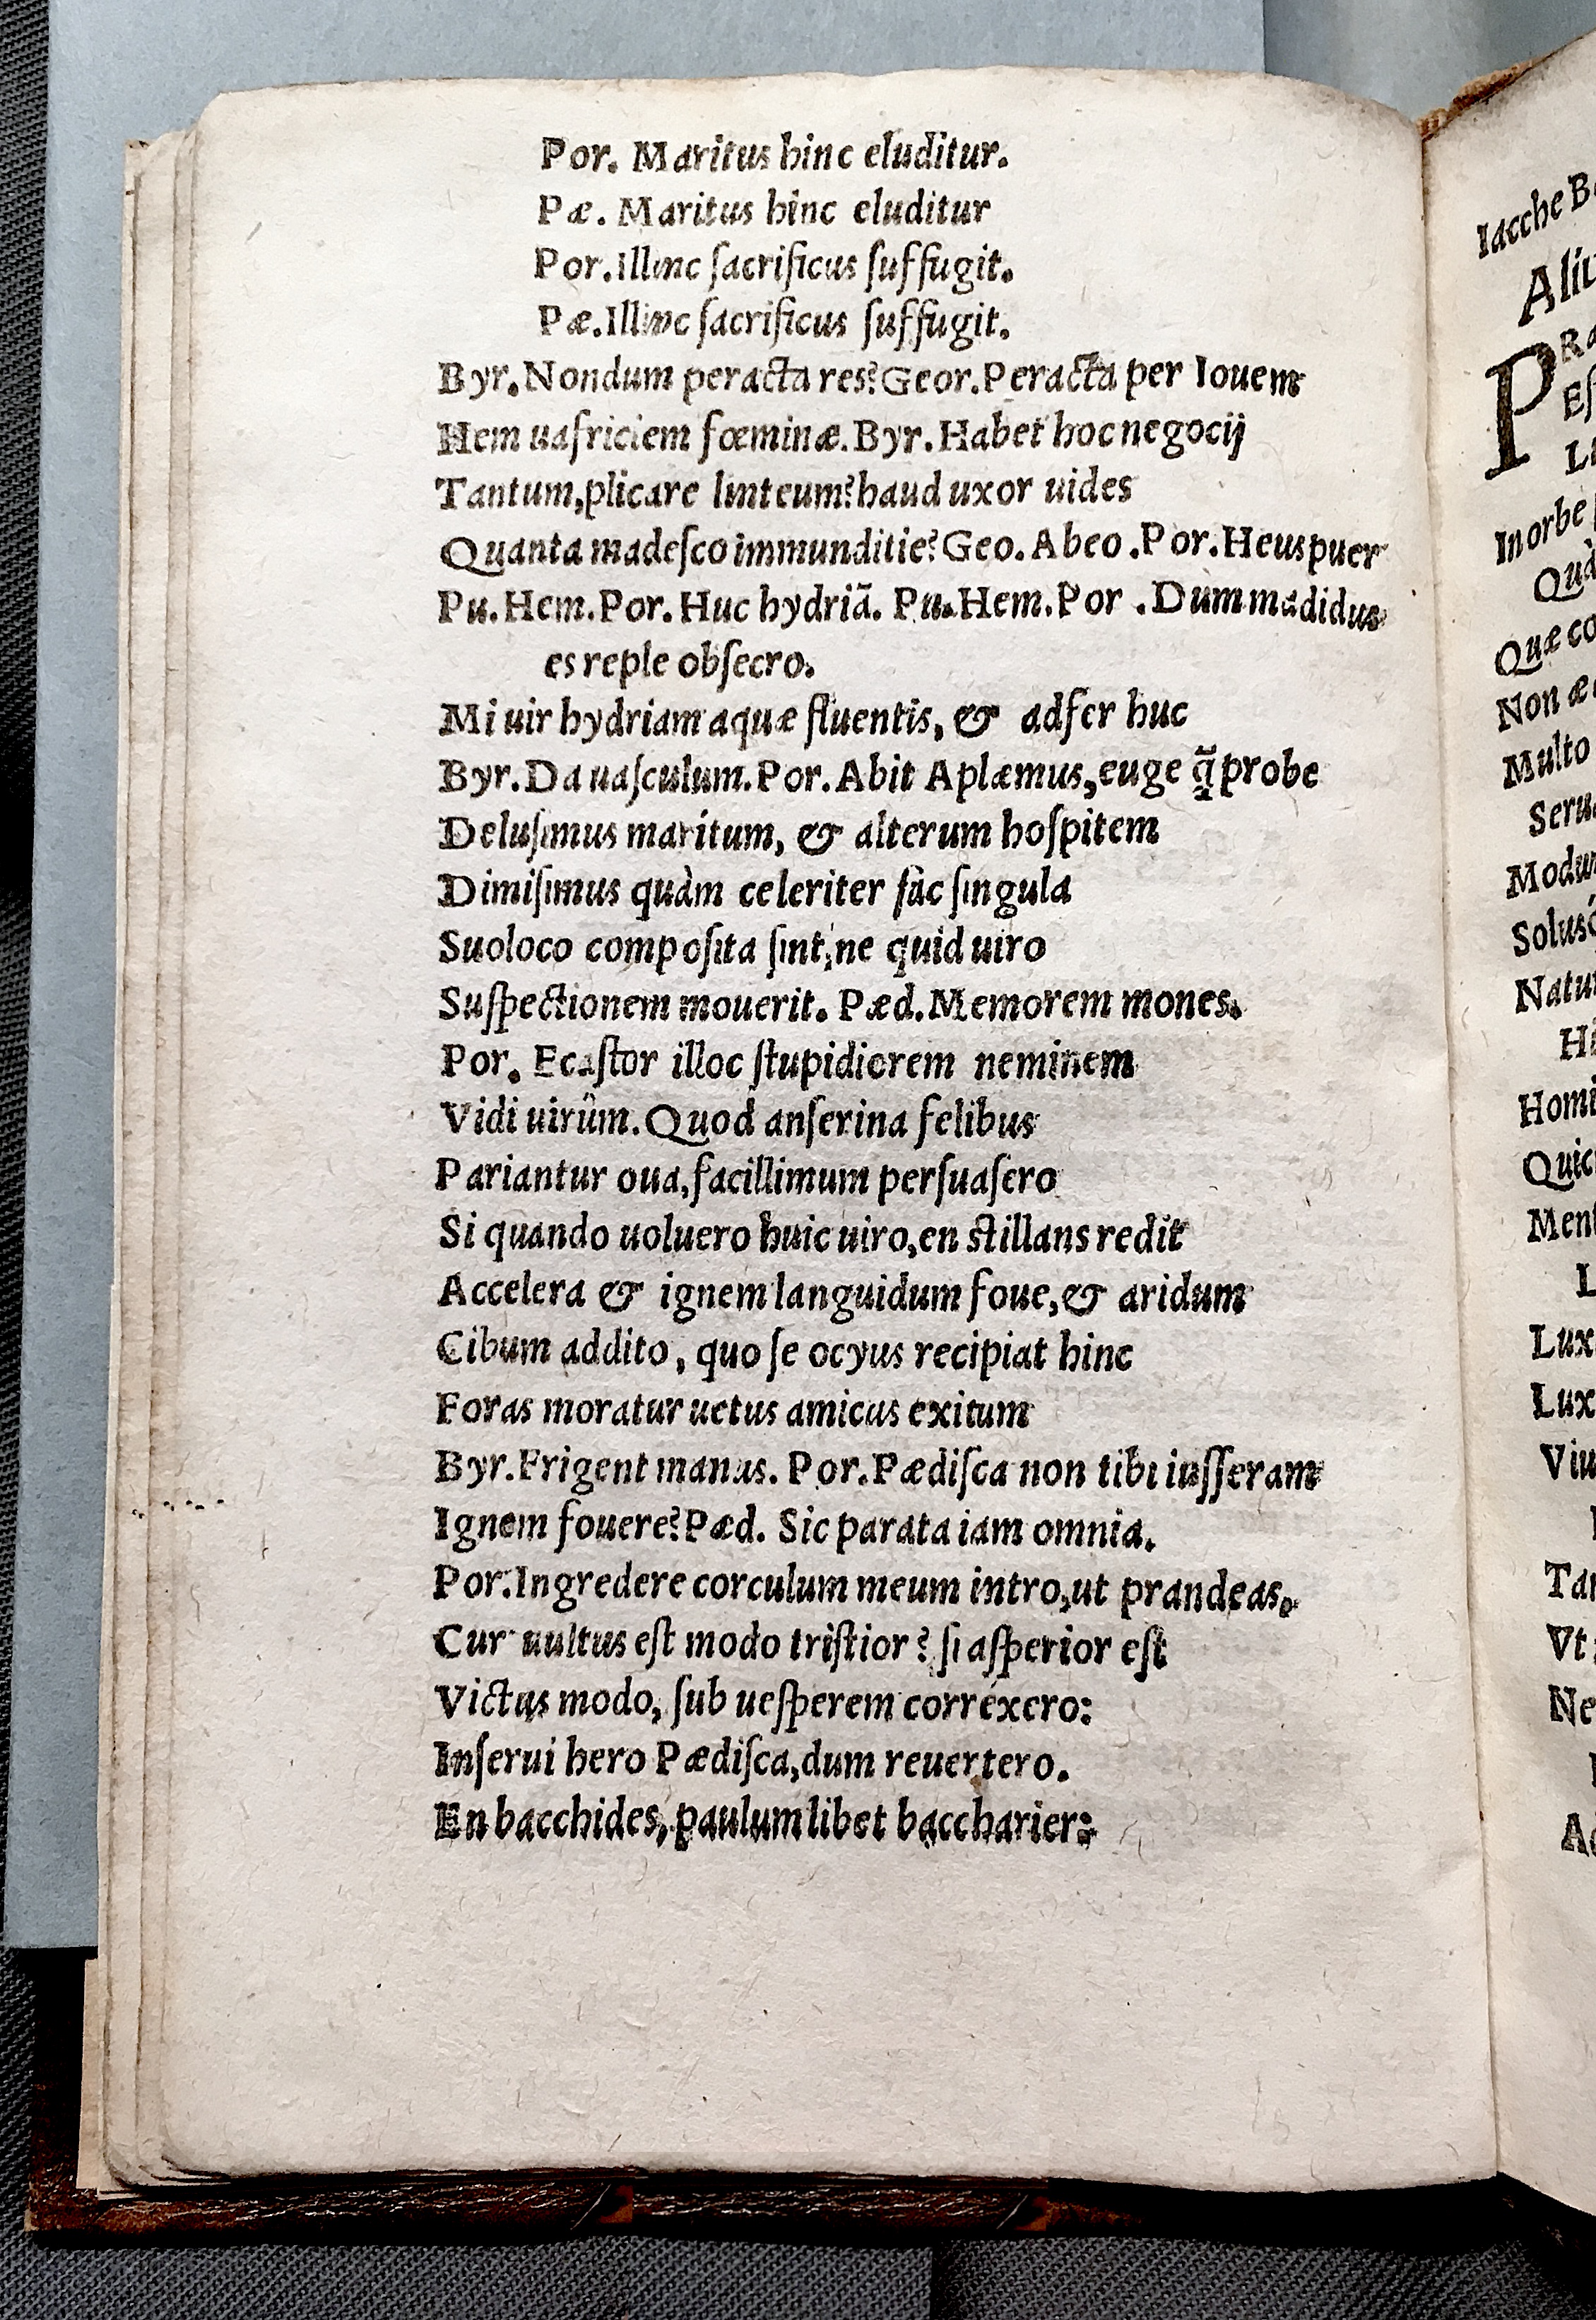 Por. Maritus hinc eluditur.
Pæ. Maritus hinc eluditur
Por. Illinc ſacrificus ſuffugit.
Pæ. Illinc ſacrificus ſuffugit.
Byr. Nondum peracta res? Geor. Peracta per Iouem
Hem uafriciem fœminæ. Byr. Habet hoc negocij
Tantum, plicare linteum? haud uxor uides
Quanta madeſco immunditie? Geo. Abeo. Por. Heus puer
Pu. Hem. Por. Huc hydriã. Pu. Hem. Por. Dum madidus
es reple obſecro.
Mi uir hydriam aquæ fluentis, & adfer huc
Byr. Da uaſculum. Por. Abit Aplæmus, euge q̃ probe
Deluſimus maritum, & alterum hoſpitem
Dimiſimus quàm celeriter fàc ſingula
Suo loco compoſita ſint, ne quid uiro
Suſpectionem mouerit. Pæd. Memorem mones.
Por. Ecaſtor illoc ſtupidiorem neminem
Vidi uirûm. Quod anſerina felibus
Pariantur oua, facillimum perſuaſero
Si quando uoluero huic uiro, en ſtillans redit
Accelera & ignem languidum foue, & aridum
Cibum addito, quo ſe ocyus recipiat hinc
Foras moratur uetus amicus exitum
Byr. Frigent manus. Por. Pædiſca non tibi iuſſeram
Ignem fouere? Pæd. Sic parata iam omnia.
Por. Ingredere corculum meum intro, ut prandeas.
Cur uultus eſt modo triſtior? ſi aſperior eſt
Victus modo, ſub ueſperem corréxero:
Inſerui hero Pædiſca, dum reuertero.
En bacchides, paulum libet baccharier:
Iacche
P
In orbe
Quæ
Non
Multo
Natur
Lux
Vt